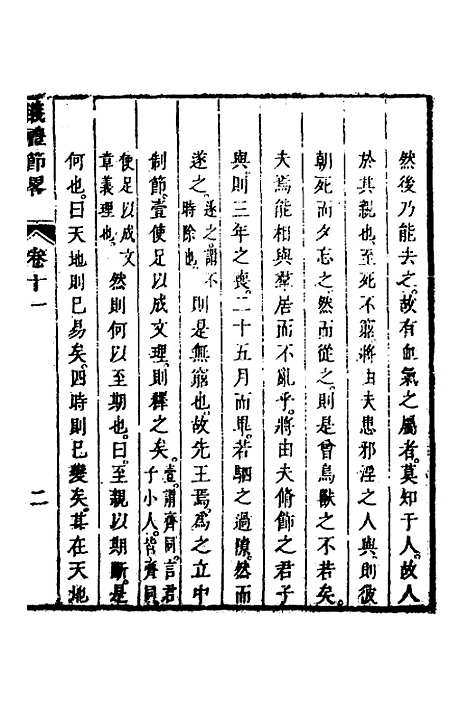 然後乃能去之。故有血氣之屬者。莫知于人。故人
於其親也。至死不窮。將由夫患邪淫之人與。則彼
朝死而夕忘之。然而從之。則是曾鳥獸之不若矣。
夫焉能相與羣居而不亂乎。將由夫脩飾之君子
與。則三年之喪。二十五月而畢。若駟之過隙。然而
遂之。遂之謂不時除也。則是無窮也。故先王焉。爲之立中
制節。壹使足以成文理。則釋之矣。壹。謂齊同。言君子小人。皆齊同
便足以成文章義理也。然則何以至期也。曰。至親以期斷。是
何也。曰天地則已易矣。四時則已變矣。其在天地
儀禮節畧
卷十一
二